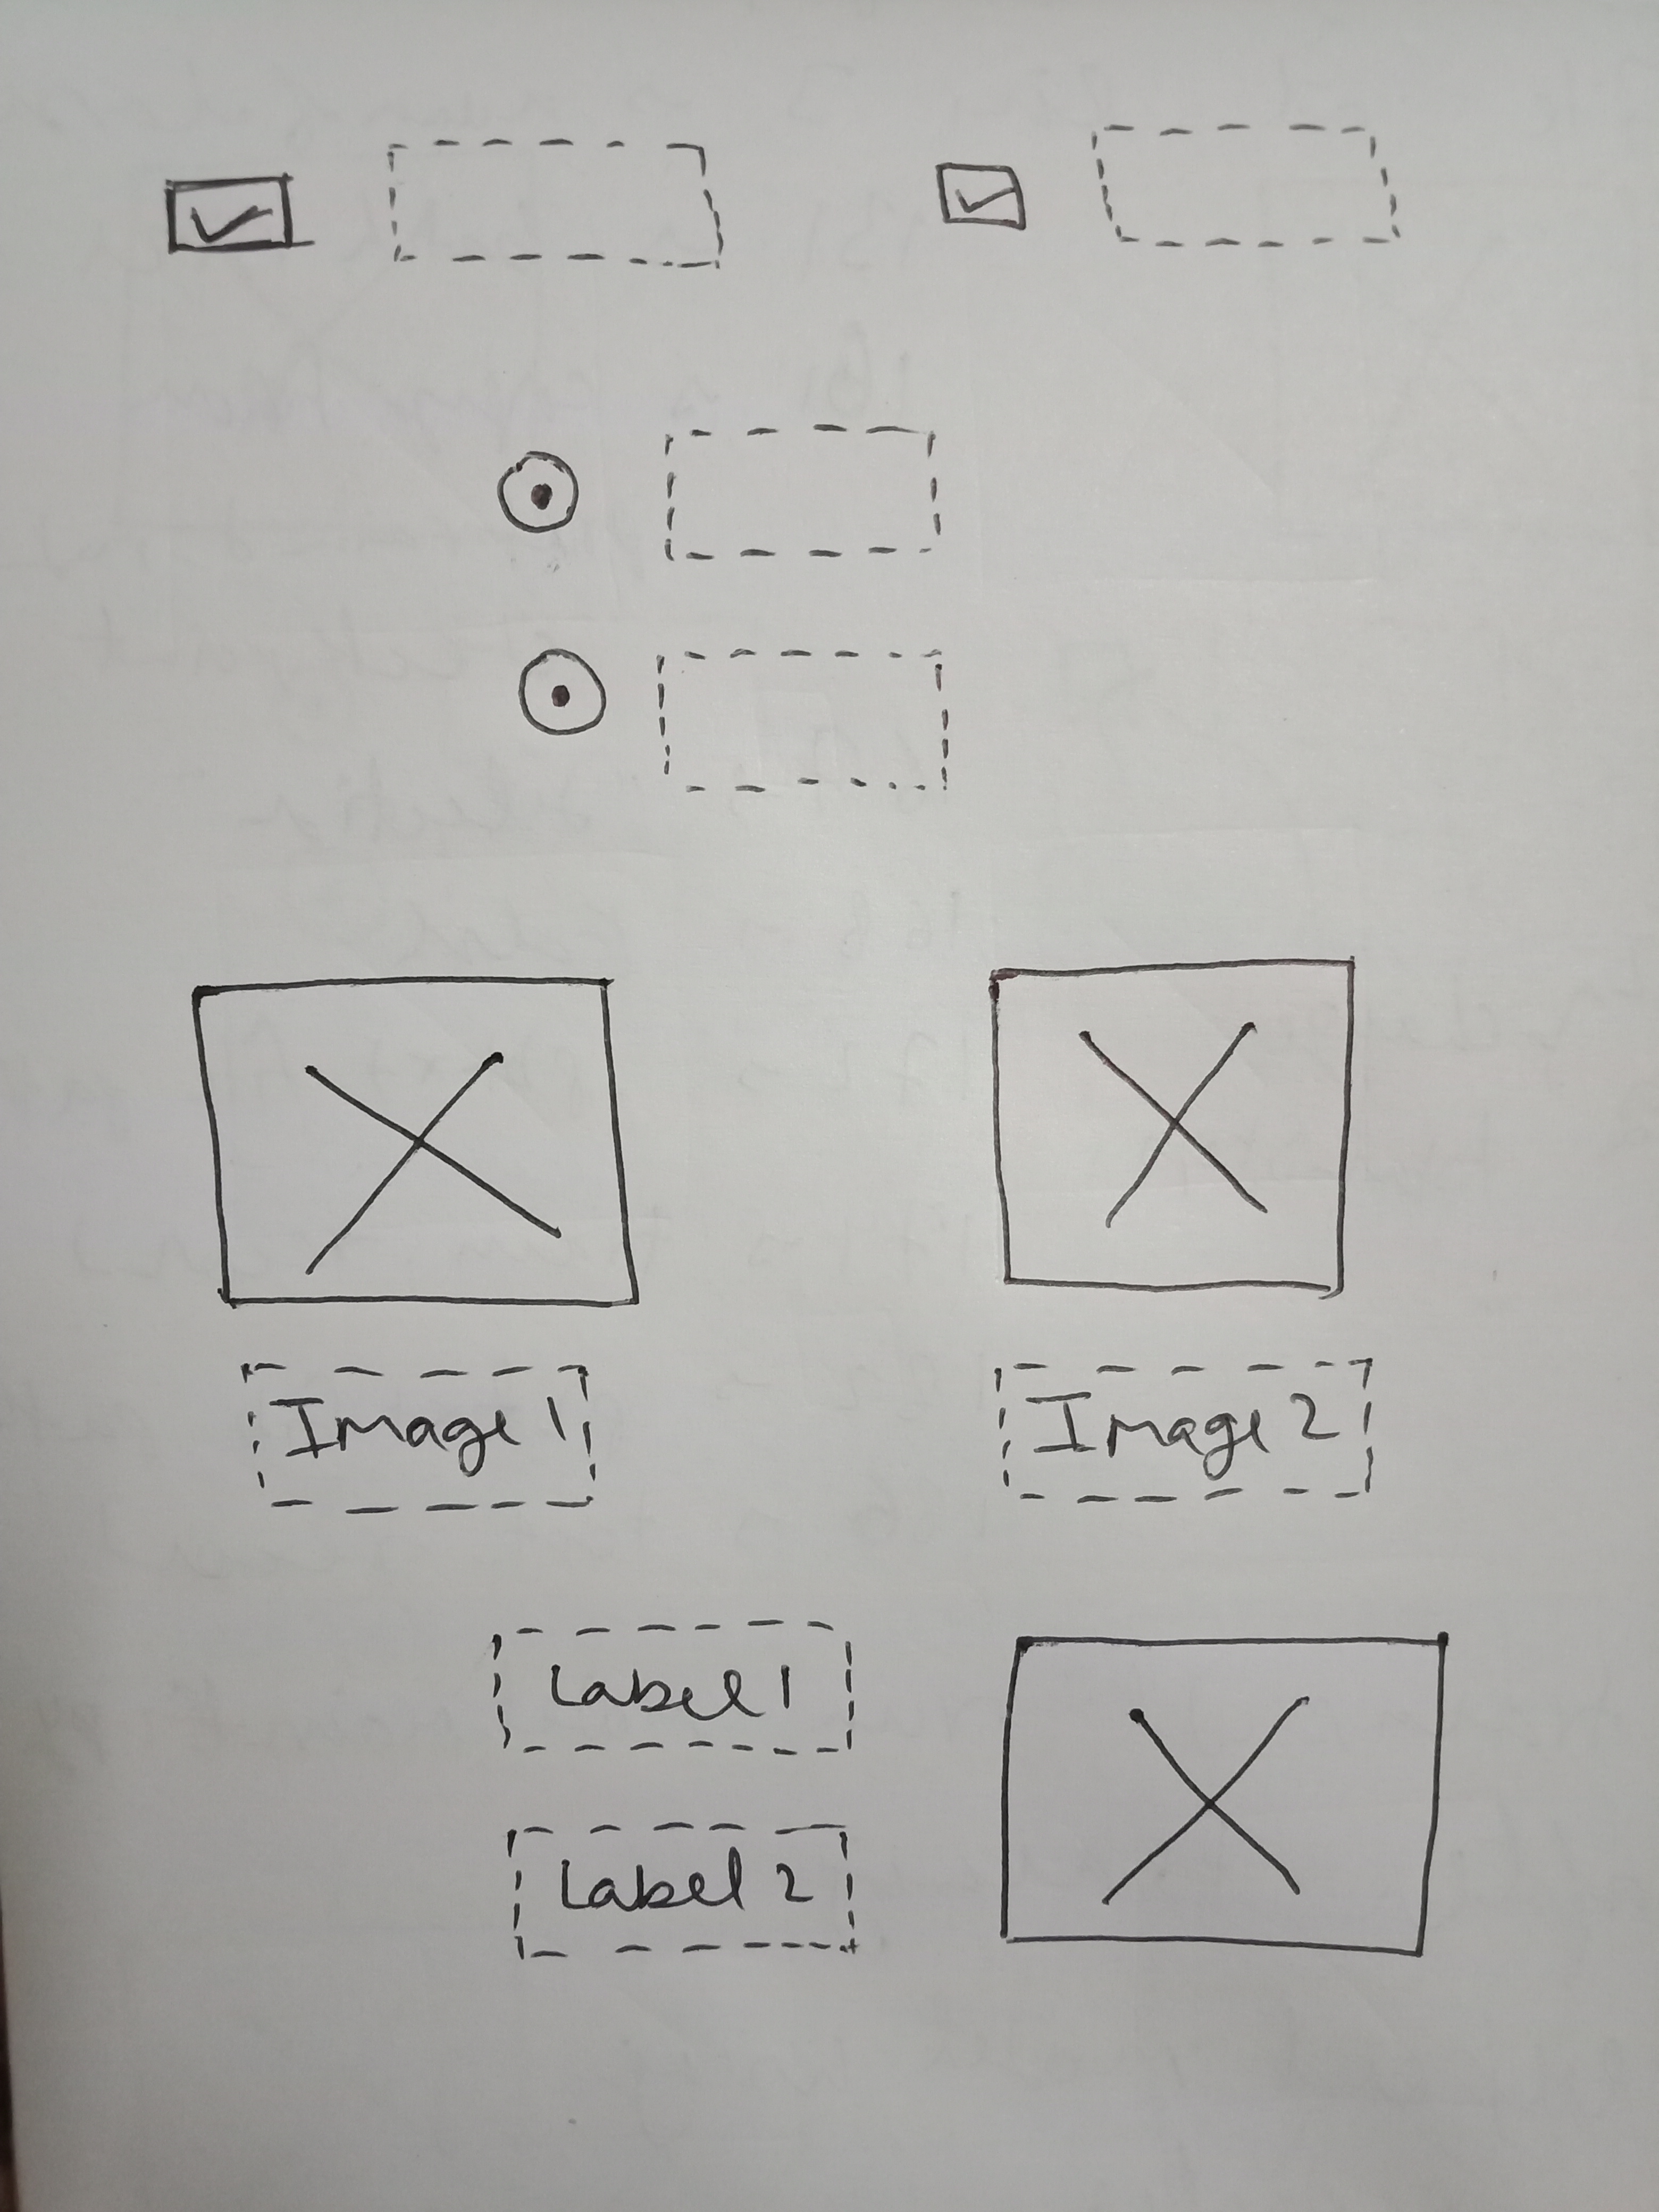 Image 1
Image 2
Label 1
Label 2